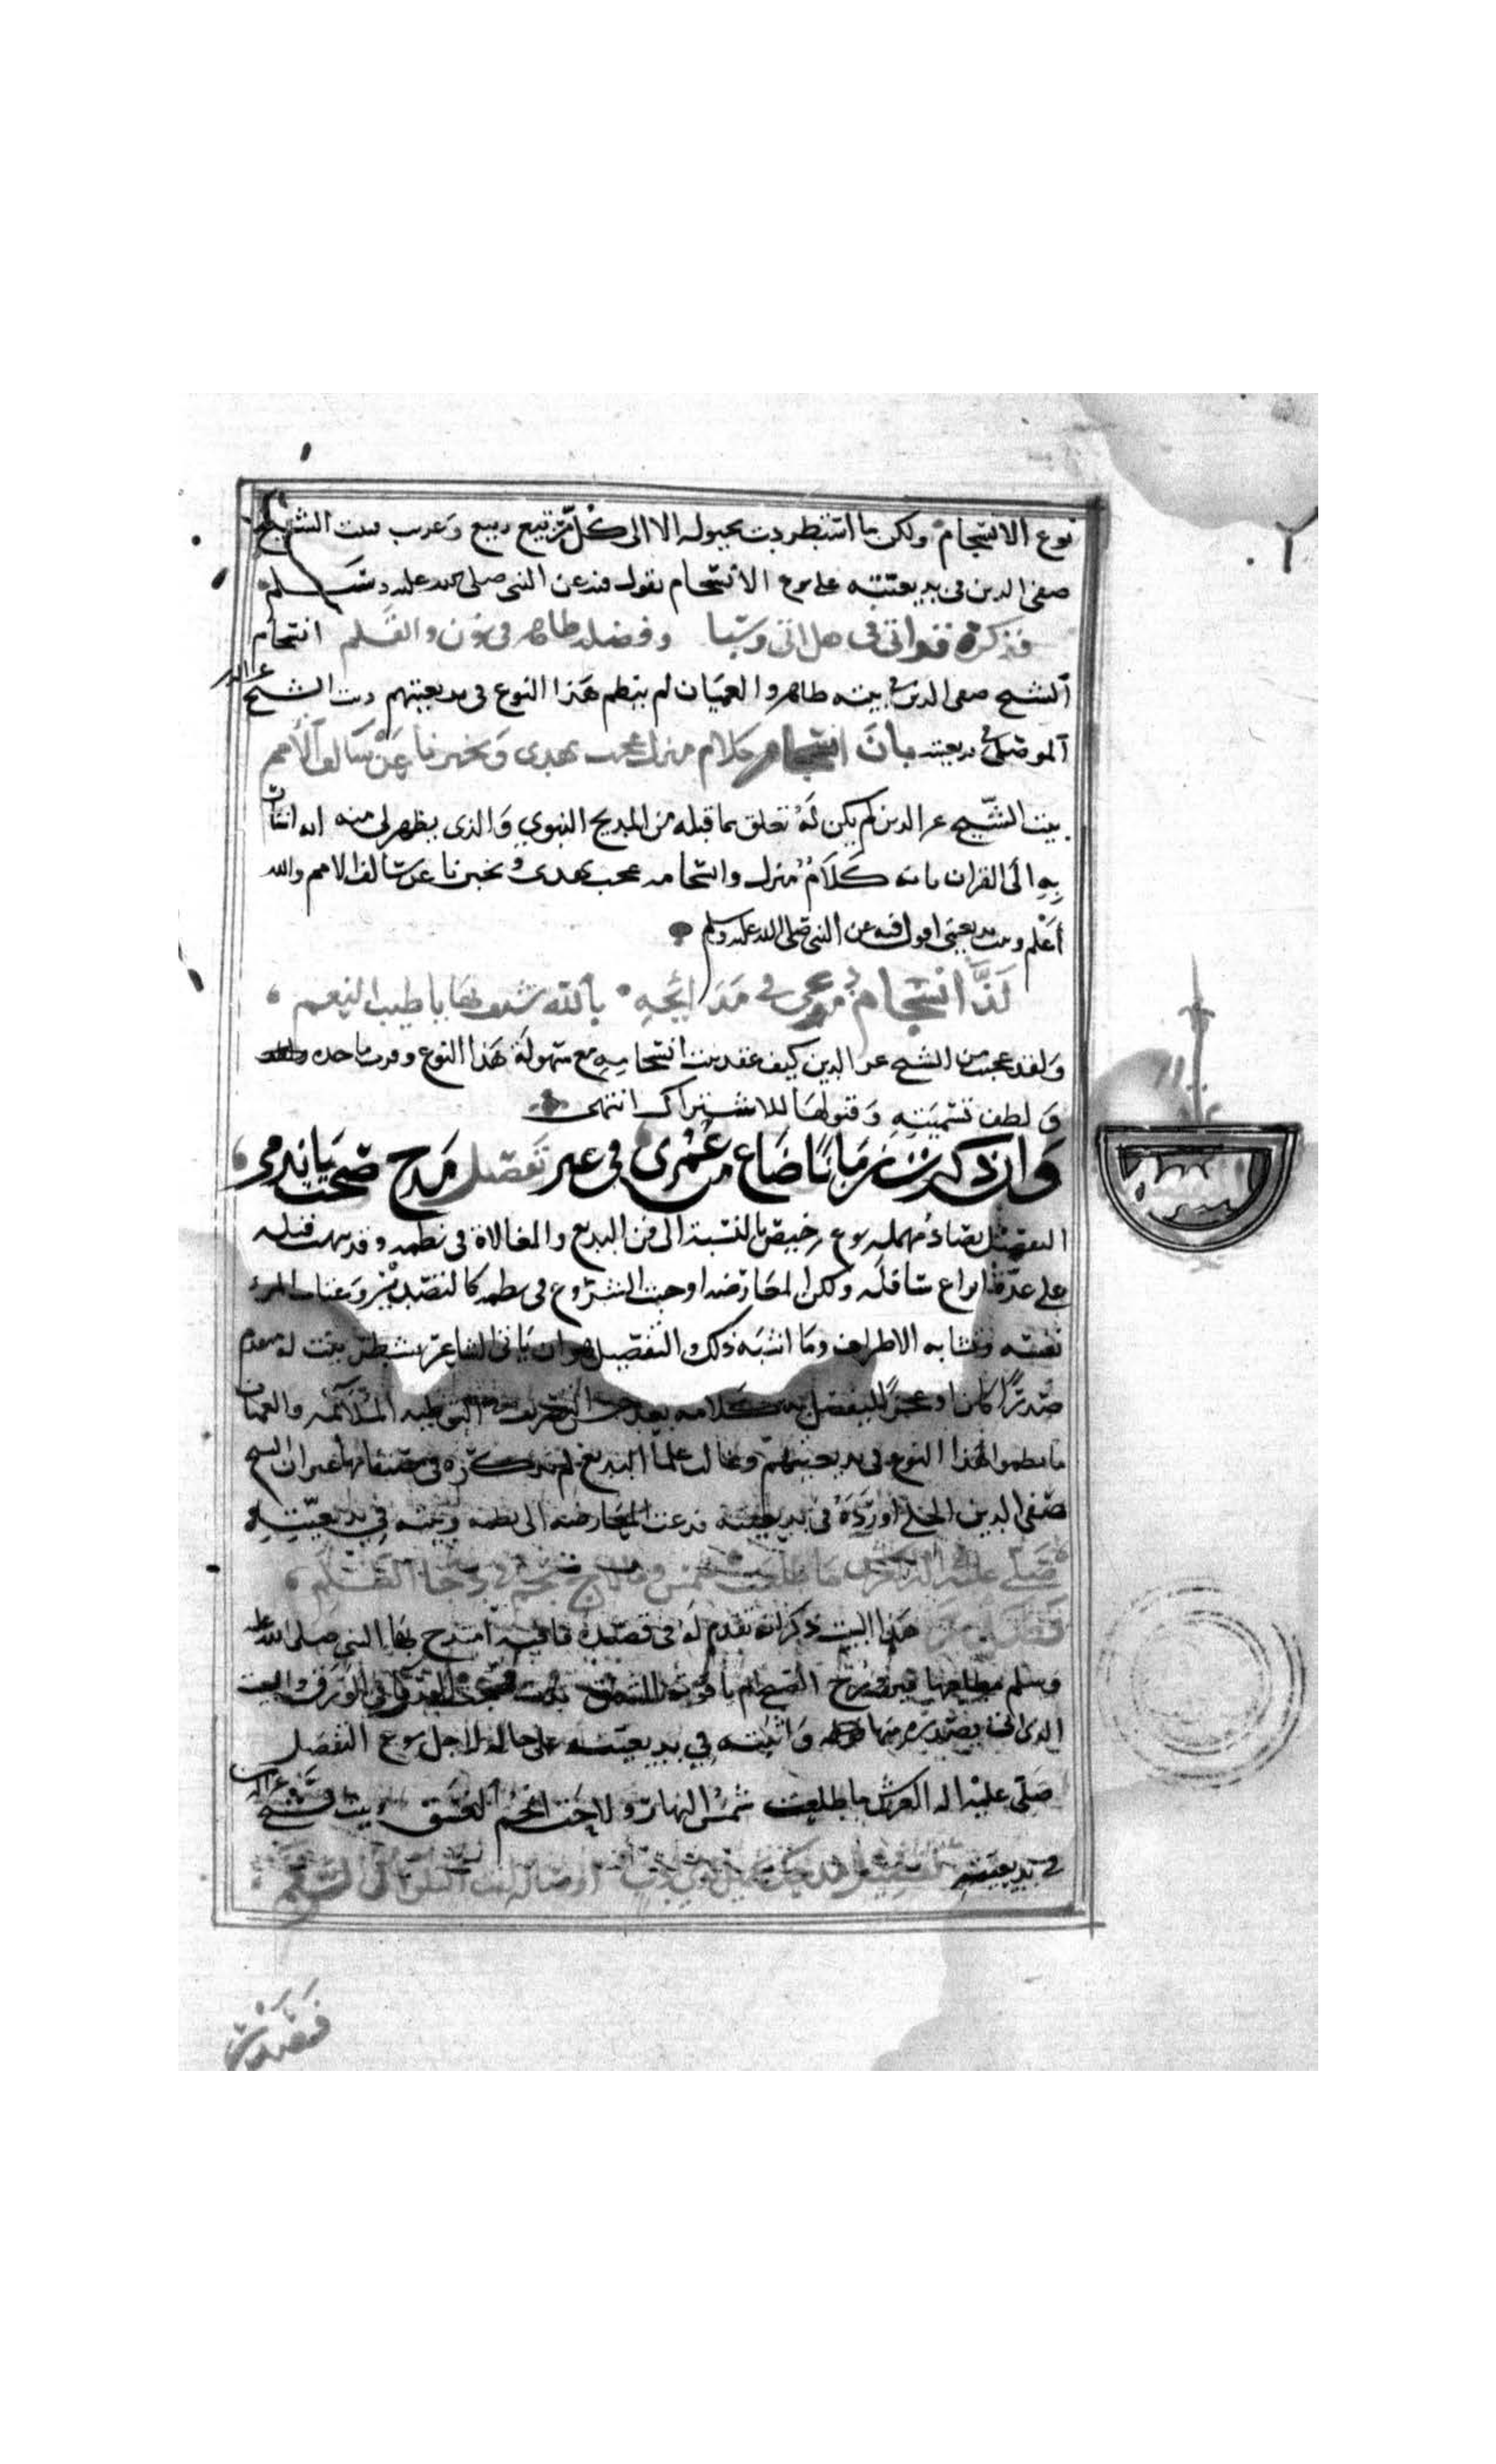 نوع الانسجام ولكن ما استطردت بخيوله الا الى كل مرتبع ربيع وغريب بيت الشيخ
صفى الدين فى بديعيته على نوع الانسجام يقول فيه عن النبى صلى الله عليه وسلم
فذكره قد اتى فى هل اتى وسبا وفضله ظاهر فى نون والقلم انسجام
الشيخ صفى الدين فى بيته ظاهر والعميان لم ينظم هذا النوع فى بديعيتهم وبيت الشيخ عز الدين
الموصلى فى بديعيته بان انسجام كلام منزل عجب يهدى ويخبرنا عن سالف الأمم
بيت الشيخ عز الدين لم يكن له تعلق بما قبله من المديح النبوي والذى يظهر لى منه انه اشار
به الى القران بانه كلام منزل وانسجامه عجب يهدى ويخبرنا عن سالف الامم والله
أعلم وبيت بديعيتى اقول فيه عن النبى صلى الله عليه وسلم
لذ انسجام دموعى فى مدايحه بالله شنف بها يا طيب النغم
ولقد عجبت من الشيخ عز الدين كيف عقد بيت انسجامه مع سهولة هذا النوع وقرب ماخذه
ولطف تسميته وقبولها للاشتراك انتهى
وان ذكرت زمانا ضاع من عمرى فى غير تفصيل مدح صحت يا ندمى
التفصيل بصاد مهملة نوع رخيص بالنسبة الى فن البديع والمغالاة فى نظمه وقد نبهت قبله
على عدة انواع سافلة ولكن المعارضه اوجبت الشروع فى نظمه كالتصدير وعتاب المرء
نفسه وتشابه الاطراف وما اشبه ذلك والتفصيل هو ان ياتى الشاعر بشطر بيت له متقدم
صدرا كان او عجزا ليفصل به كلامه بعد حسن التصريف فى التوطيه الملائمه والعميان
ما نظموا هذا النوع فى بديعيتهم وغالب علما البديع لم تذكره فى مصنفاتها غير ان الشيخ
صفى الدين الحلى اورده فى بديعيته فدعت المعارضه الى نظمه وبيته فى بديعيته
صلى عليه اله العرش ما طلعت شمس وما لاح نجم فى دجا الظلم
هذا البيت ذكر انه تقدم له فى قصيدة قافيه امتدح بها النبى صلى الله عليه
وسلم مطلعها فيروزج الصبح ام ياقوتة الشفق بدت فهيجت الورقا فى الورق والبيت
الذى اتى بصدره منها واثبته فى بديعيته على حاله لاجل نوع التفصيل
صلى عليه اله العرش ما طلعت شمس النهار ولاحت انجم الغسق وبيت الشيخ عز الدين
فى بديعيته